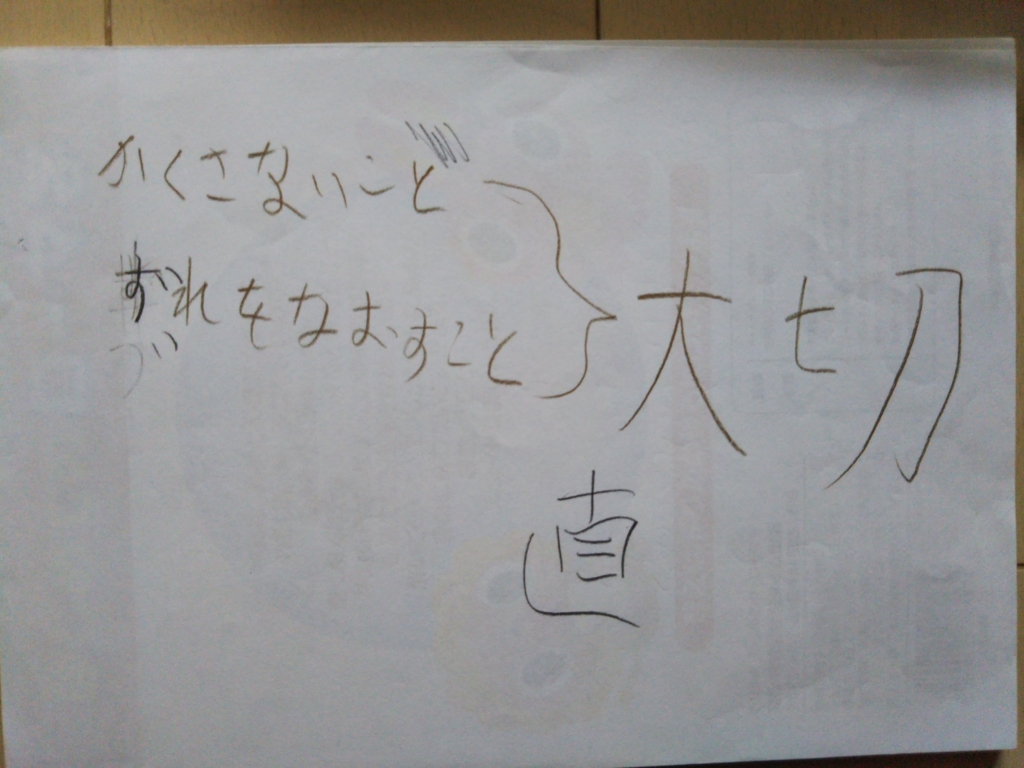 かくさないこと
ずれをなおすこと
づ
大切
直